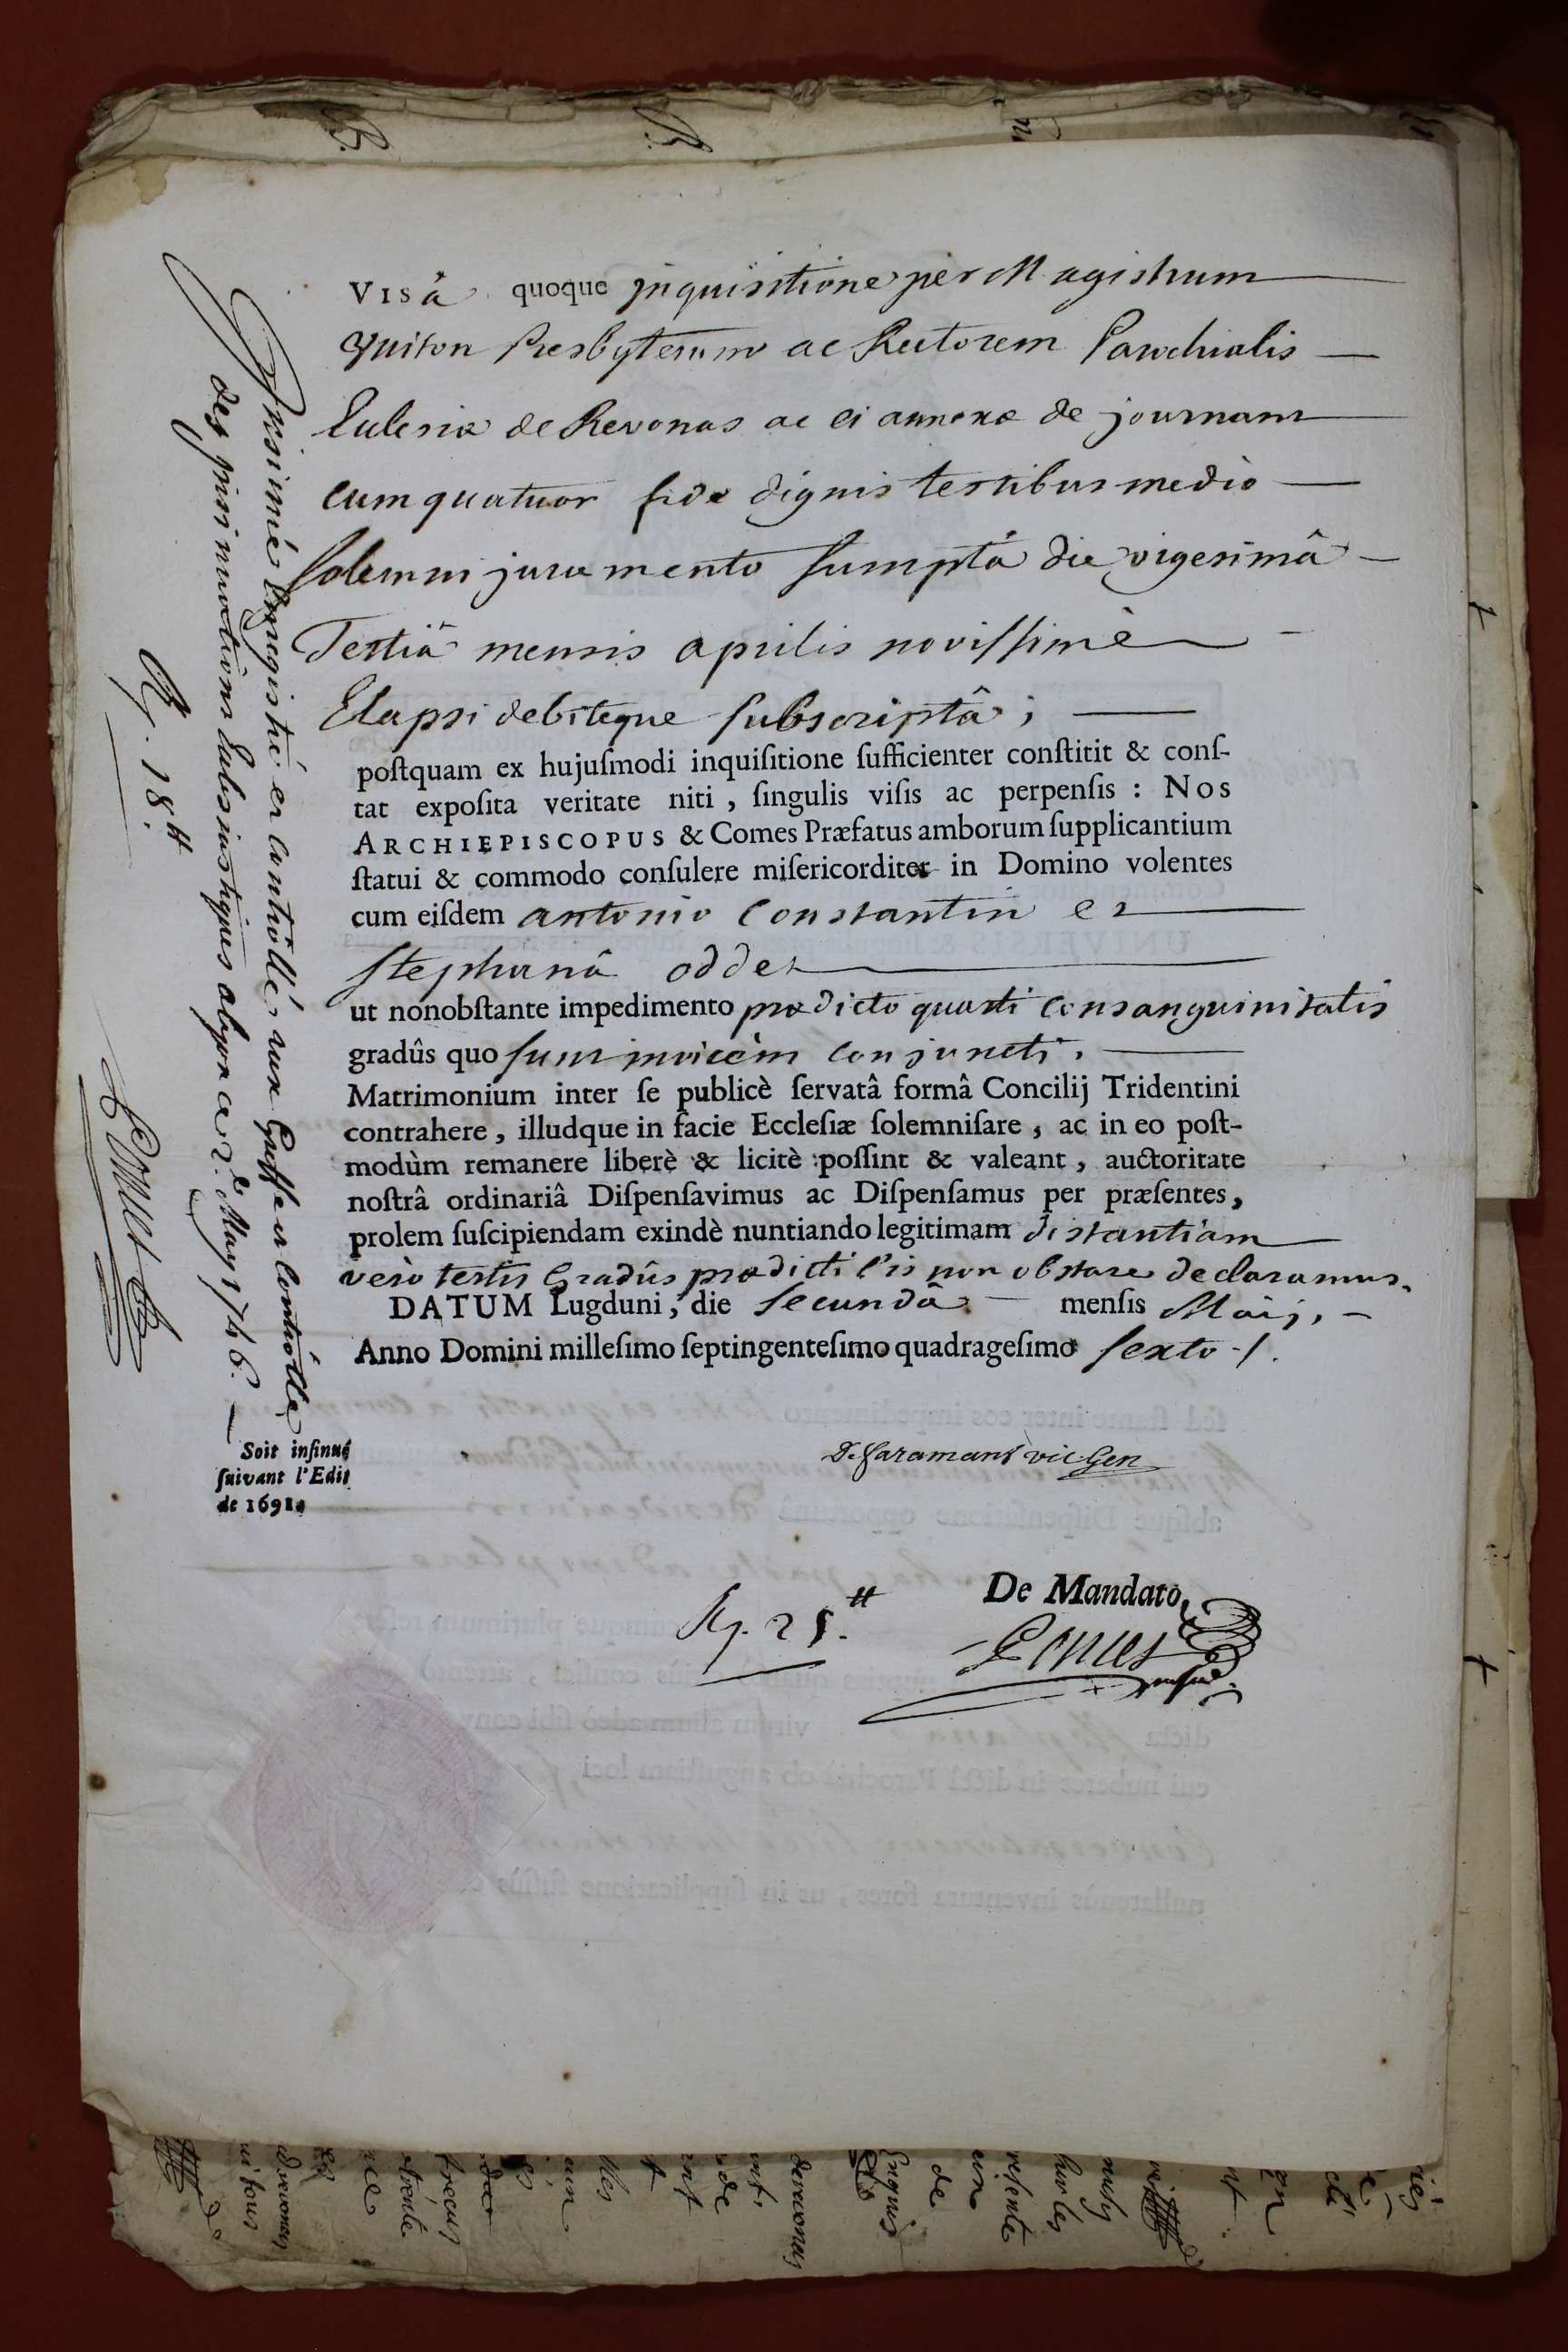 VISâ quoque inquisitione per Magistrum
Guiton Presbyterum ac Rectorem Parochialis
Ecclesiæ de Revonas ac ei annexæ de journans
cum quatuor fide dignis testibus medio
solemni juramento sumptâ die vigesimâ
Tertiâ mensis aprilis novissimè
Elapsi debiteque subscriptâ ;
poſtquam ex hujuſmodi inquiſitione ſufficienter conſtitit & conſ-
tat expoſita veritate niti , ſingulis viſis ac perpenſis : NOS
ARCHIEPISCOPUS & Comes Præfatus amborum ſupplicantium
ſtatui & commodo conſulere miſericorditer in Domino volentes
cum eiſdem antonio Constantin et
stephanâ oddet
ut nonobſtante impedimento prædicto quarti consanguinitatis
gradûs quo sunt invicèm conjuncti,
Matrimonium inter ſe publicè ſervatâ formâ Concilij Tridentini
contrahere , illudque in facie Eccleſiæ ſolemniſare , ac in eo poſt-
modùm remanere liberè & licitè poſſint & valeant , auctoritate
noſtrâ ordinariâ Diſpenſavimus ac Diſpenſamus per præſentes,
prolem ſuſcipiendam exindè nuntiando legitimam distantiam
verò tertii Gradûs prædicti eis non obstare declaramus.
DATUM Lugduni, die secundâ menſis Maij,
Anno Domini milleſimo ſeptingenteſimo quadrageſimo sexto ./.
Insinué Enregistré et controllé, aux Greffe et Controlle
des insinuations Ecclesiastiques a lyon ce 2.e May 1746.
Soit inſinué
ſuivant l'Edit
de 1691.
vic. Gen
De Mandato,
R. 25.tt
R. 18.tt